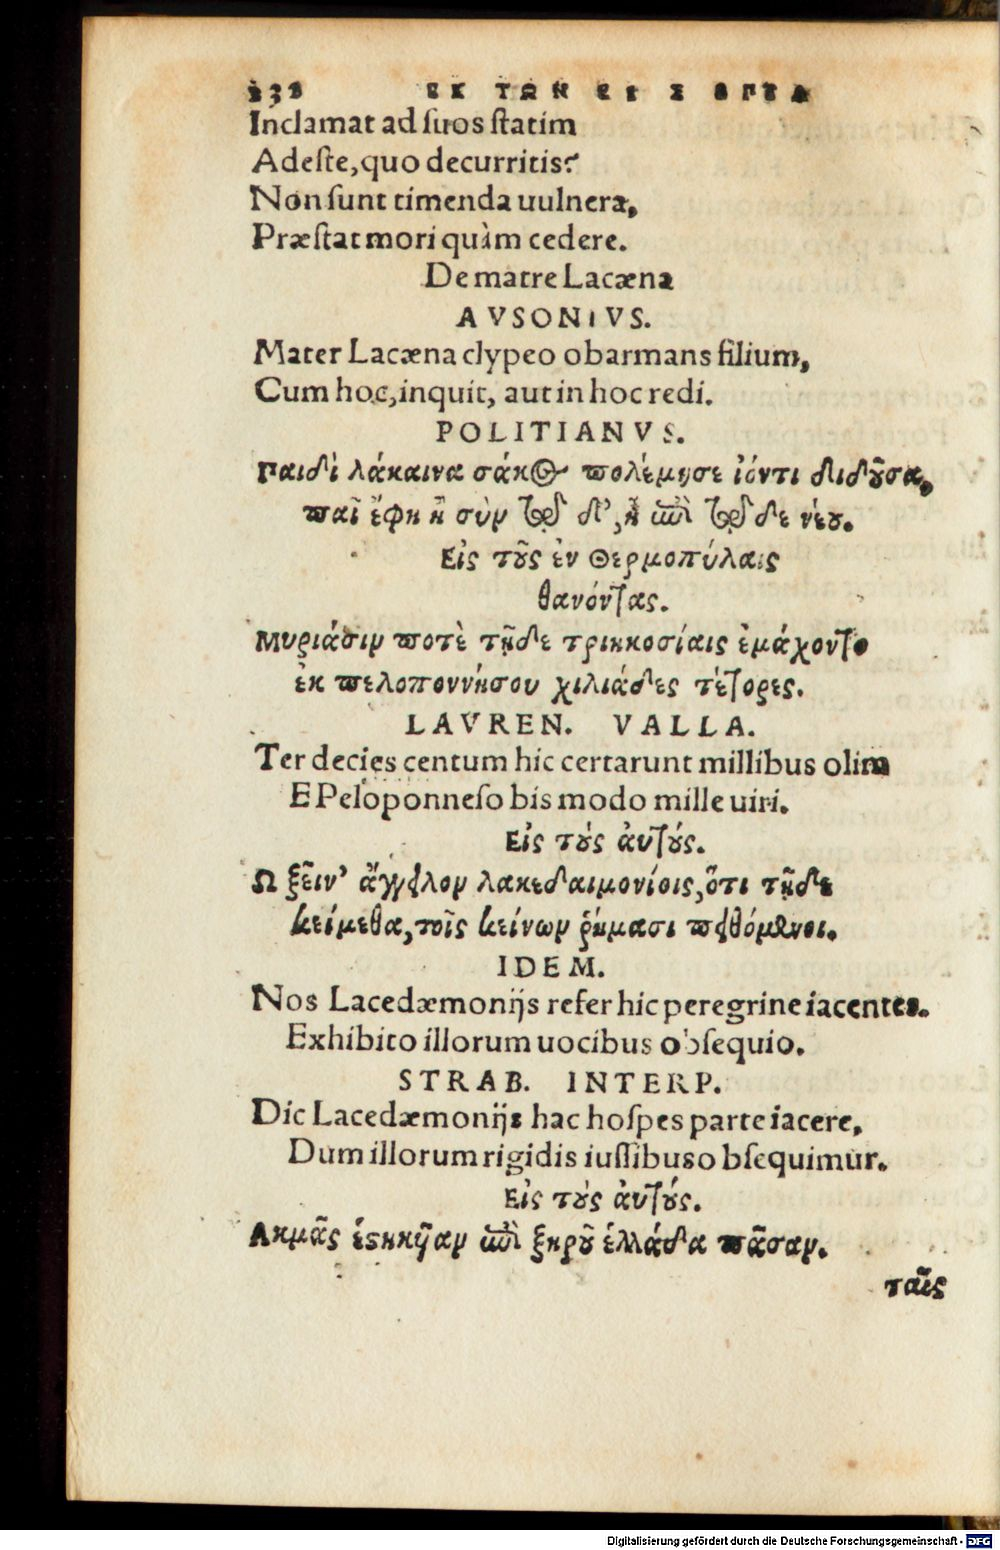 232 ΕΚ ΤΩΝ ΕΙΣ ΟΠΛΑ
Inclamat ad suos statim
Adeste, quo decurritis?
Non sunt timenda uulnera,
Præstat mori quàm cedere.
De matre Lacæna
AVSONIVS.
Mater Lacæna clypeo obarmans filium,
Cum hoc, inquit, aut in hoc redi.
POLITIANVS.
Παιδὶ λάκαινα σάκος πολέμησε ἰόντι διδοῦσα,
παῖ ἔφη ἢ σὺν τῷδ', ἢ ἐπὶ τῷδε νέου.
Εἰς τοῦς ἐν Θερμοπύλαις
θανόντας.
Μυριάσιν ποτὲ τῇδε τριηκοσίαις ἐμάχοντο
ἐκ πελοποννήσου χιλιάδες τέτορες.
LAVREN. VALLA.
Ter decies centum hic certarunt millibus olim
E Peloponneso bis modo mille uiri.
Εἰς τοὺς ἀυτούς.
Ω ξεῖν' ἄγγειλον λακεδαιμονίοις, ὅτι τῇδε
κείμεθα, τοῖς κείνων ῥήμασι πειθόμενοι.
IDEM.
Nos Lacedæmonijs refer hic peregrine iacentes.
Exhibito illorum uocibus obsequio.
STRAB. INTERP.
Dic Lacedæmonijs hac hospes parte iacere,
Dum illorum rigidis iussibus obsequimur.
Εἰς τοὺς ἀυτούς.
Ακμᾶς ἑστηκῦαν ἐπὶ ξηροῦ ἑλλάδα πᾶσαν.
ταῖς
Digitalisierung gefördert durch die Deutsche Forschungsgemeinschaft - DFG